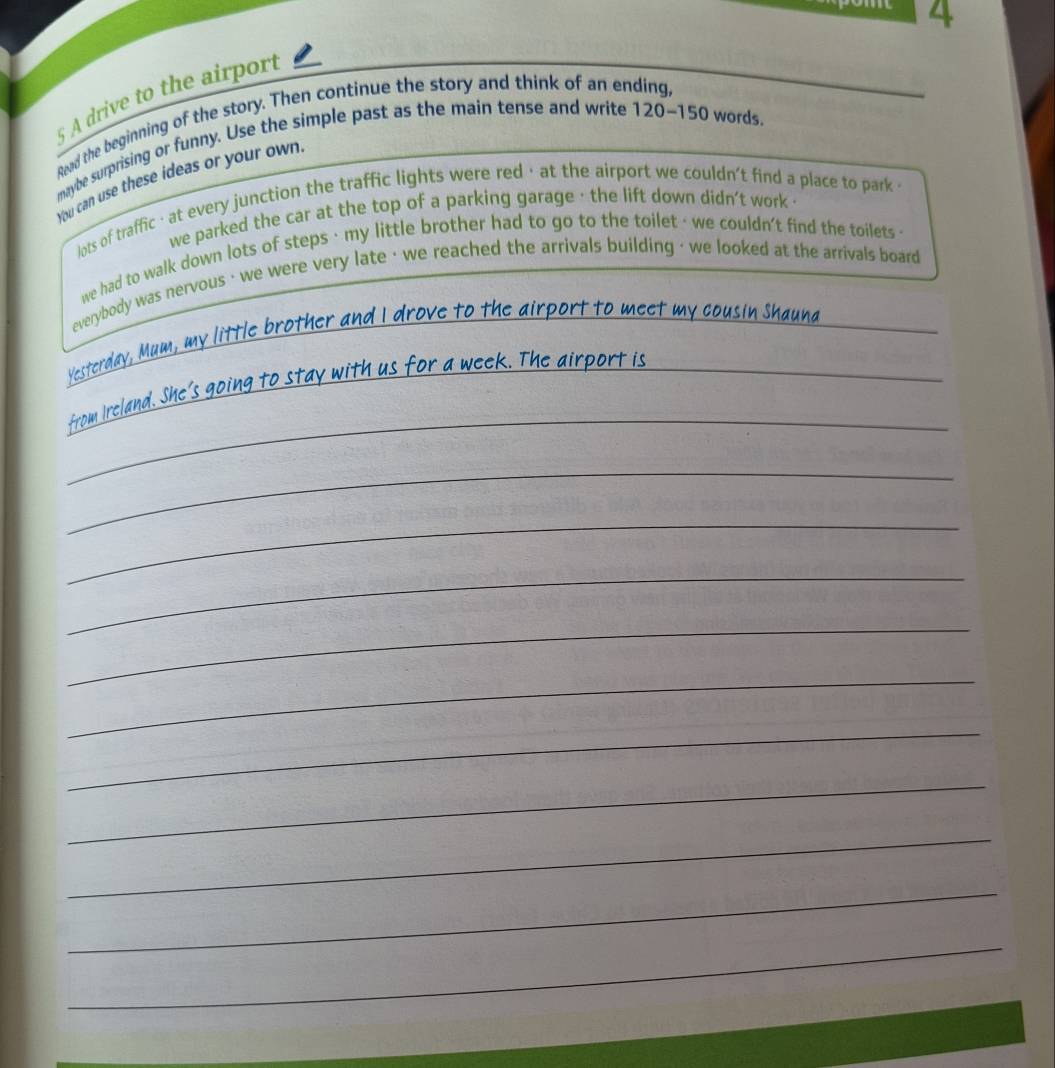 4
5 A drive to the airport
Read the beginning of the story. Then continue the story and think of an ending,
maybe surprising or funny. Use the simple past as the main tense and write 120–150 words.
You can use these ideas or your own.
lots of traffic · at every junction the traffic lights were red · at the airport we couldn't find a place to park ·
we parked the car at the top of a parking garage · the lift down didn't work ·
we had to walk down lots of steps · my little brother had to go to the toilet · we couldn't find the toilets ·
everybody was nervous · we were very late · we reached the arrivals building · we looked at the arrivals board
Yesterday, Mum, my little brother and I drove to the airport to meet my cousin Shauna
from Ireland. She's going to stay with us for a week. The airport is